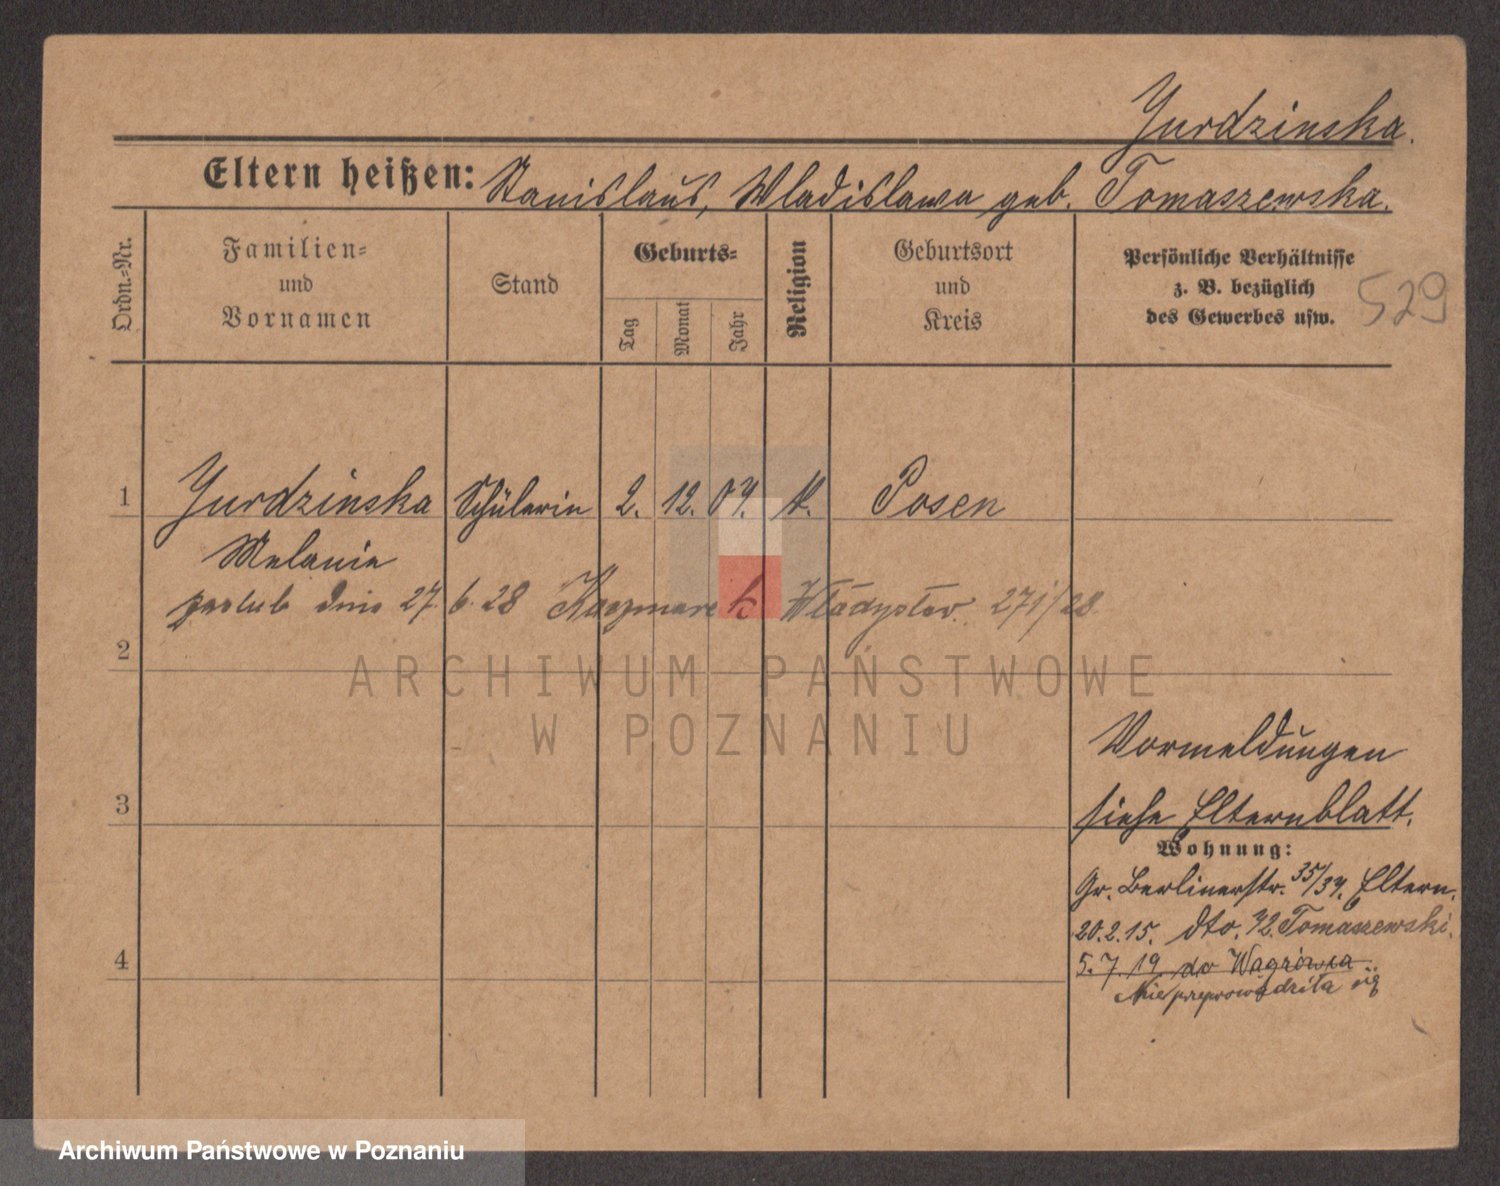 Jurdzinska.
Eltern heißen: Stanislaus, Wladislawa geb. Tomaszewska.
Ordn.=Nr.
Familien=
und
Vornamen
Stand
Geburts=
Tag
Monat
Jahr
Religion
Geburtsort
und
Kreis
Persönliche Verhältnisse
z. B. bezüglich
des Gewerbes usw.
529
1 Jurdzinska Schülerin 2. 12. 04. k. Posen
Melanie
zaślub dnia 27. 6. 28 Kaczmarek Władysław. 271/28.
2
ARCHIWUM PAŃSTWOWE
W POZNANIU
Vormeldungen
3
siehe Elternblatt.
Wohnung:
Gr. Berlinerstr. 35/37. Eltern.
20.2.15. dto. 72. Tomaszewski.
4
5.7.19 do Wągrówca
Nie przeprowadziła się
Archiwum Państwowe w Poznaniu